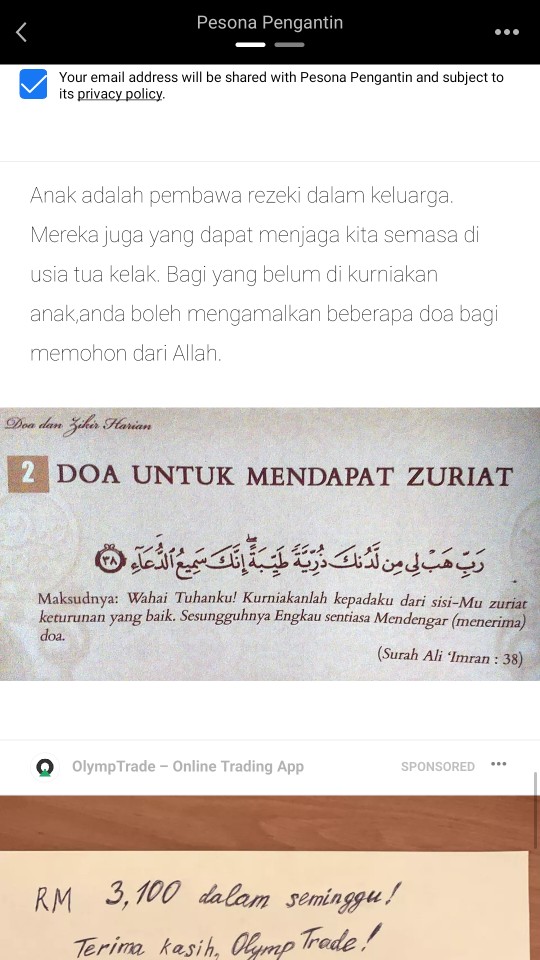 Pesona Pengantin
Your email address will be shared with Pesona Pengantin and subject to
its privacy policy.
Anak adalah pembawa rezeki dalam keluarga.
Mereka juga yang dapat menjaga kita semasa di
usia tua kelak. Bagi yang belum di kurniakan
anak,anda boleh mengamalkan beberapa doa bagi
memohon dari Allah.
Doa dan Zikir Harian
2 DOA UNTUK MENDAPAT ZURIAT
رَبِّ هَبْ لِى مِن لَّدُنكَ ذُرِّيَّةً طَيِّبَةً ۖ إِنَّكَ سَمِيعُ ٱلدُّعَآءِ ٣٨
Maksudnya: Wahai Tuhanku! Kurniakanlah kepadaku dari sisi-Mu zuriat
keturunan yang baik. Sesungguhnya Engkau sentiasa Mendengar (menerima)
doa.
(Surah Ali 'Imran : 38)
OlympTrade – Online Trading App
SPONSORED
RM 3,100 dalam seminggu!
Terima kasih, Olymp Trade!